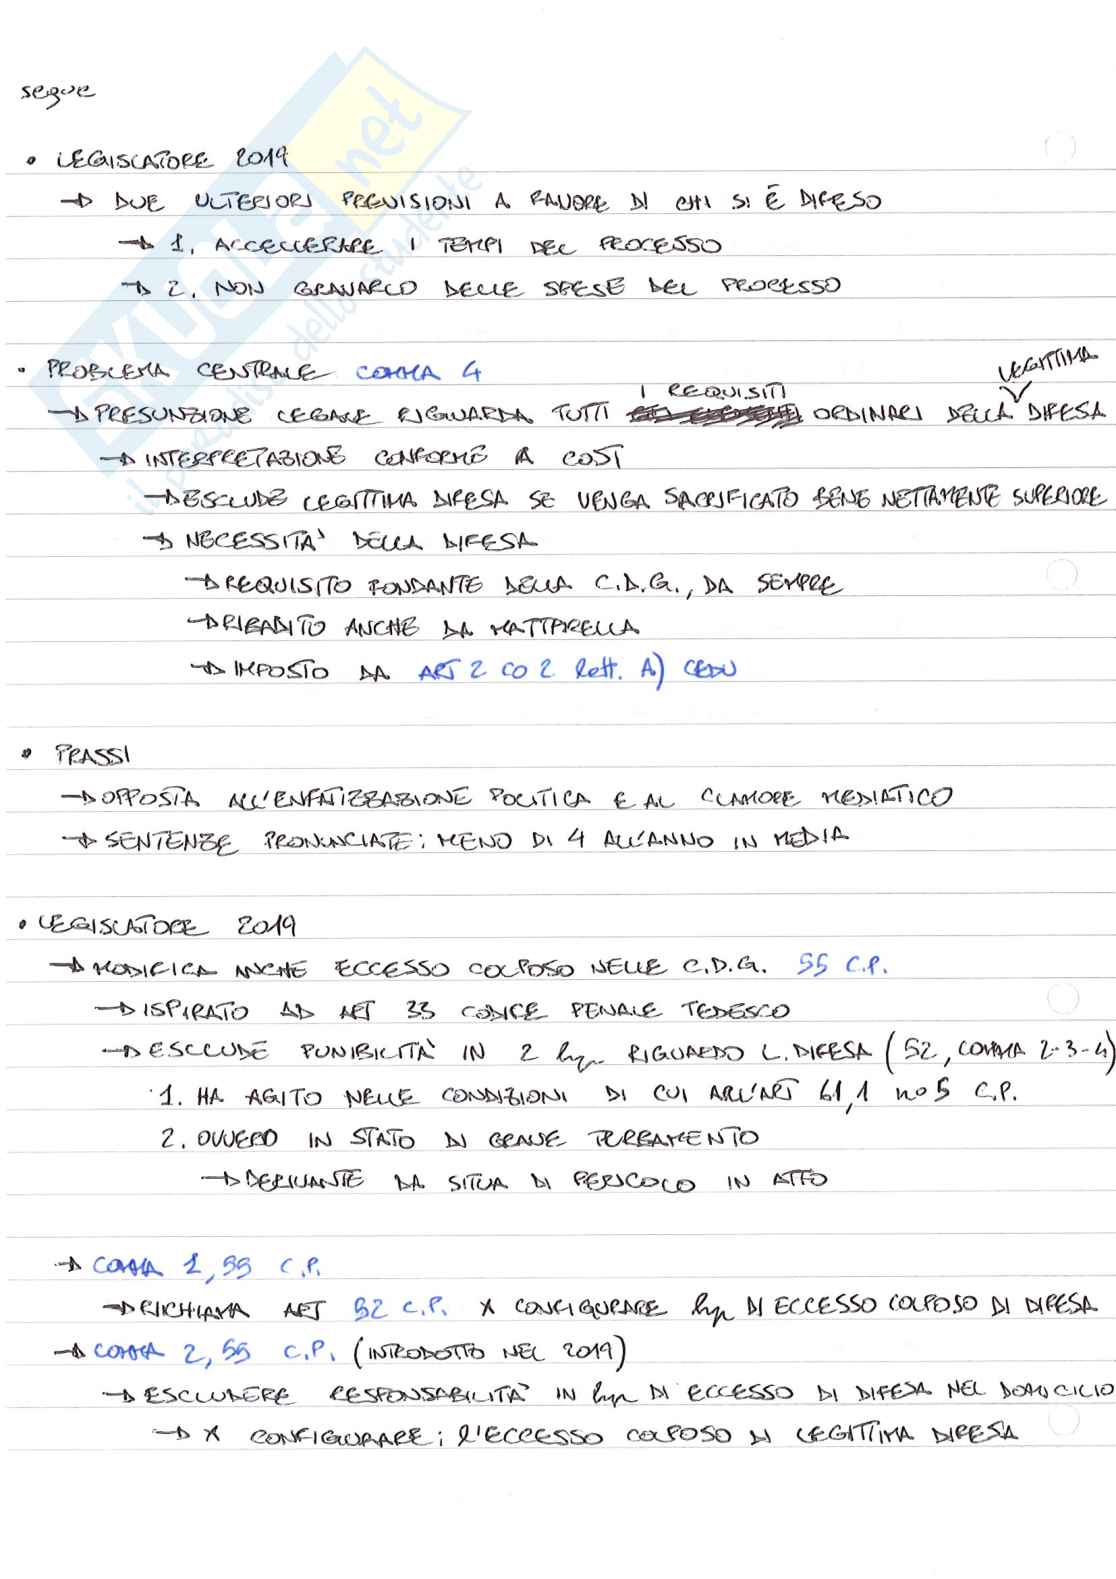 segue
• LEGISLATORE 2019
→ DUE ULTERIORI PREVISIONI A FAVORE DI CHI SI È DIFESO
→ 1. ACCELLERARE I TEMPI DEL PROCESSO
→ 2. NON GRAVARLO DELLE SPESE DEL PROCESSO
• PROBLEMA CENTRALE COMMA 4
→ PRESUNZIONE LEGALE RIGUARDA TUTTI I REQUISITI ORDINARI DELLA LEGITTIMA DIFESA
→ INTERPRETAZIONE CONFORME A COST
→ ESCLUDE LEGITTIMA DIFESA SE VENGA SACRIFICATO BENE NETTAMENTE SUPERIORE
→ NECESSITA' DELLA DIFESA
→ REQUISITO FONDANTE DELLA C.D.G., DA SEMPRE
→ RIBADITO ANCHE DA MATTARELLA
→ IMPOSTO DA ART 2 CO 2 lett. A) CEDU
• PRASSI
→ OPPOSTA ALL'ENFATIZZAZIONE POLITICA E AL CLAMORE MEDIATICO
→ SENTENZE PRONUNCIATE: MENO DI 4 ALL'ANNO IN MEDIA
• LEGISLATORE 2019
→ MODIFICA ANCHE ECCESSO COLPOSO NELLE C.D.G. 55 C.P.
→ ISPIRATO AD ART 33 CODICE PENALE TEDESCO
→ ESCLUDE PUNIBILITÀ IN 2 hp RIGUARDO L. DIFESA (52, COMMA 2-3-4)
1. HA AGITO NELLE CONDIZIONI DI CUI ALL'ART 61,1 no 5 C.P.
2. OVVERO IN STATO DI GRAVE TURBAMENTO
→ DERIVANTE DA SITUA DI PERICOLO IN ATTO
→ COMMA 1, 55 C.P.
→ RICHIAMA ART 52 C.P. X CONFIGURARE hp DI ECCESSO COLPOSO DI DIFESA
→ COMMA 2, 55 C.P. (INTRODOTTO NEL 2019)
→ ESCLUDERE RESPONSABILITA' IN hp DI ECCESSO DI DIFESA NEL DOMICILIO
→ X CONFIGURARE: l'ECCESSO COLPOSO DI LEGITTIMA DIFESA
SKUOLA.net
il paradiso dello studente